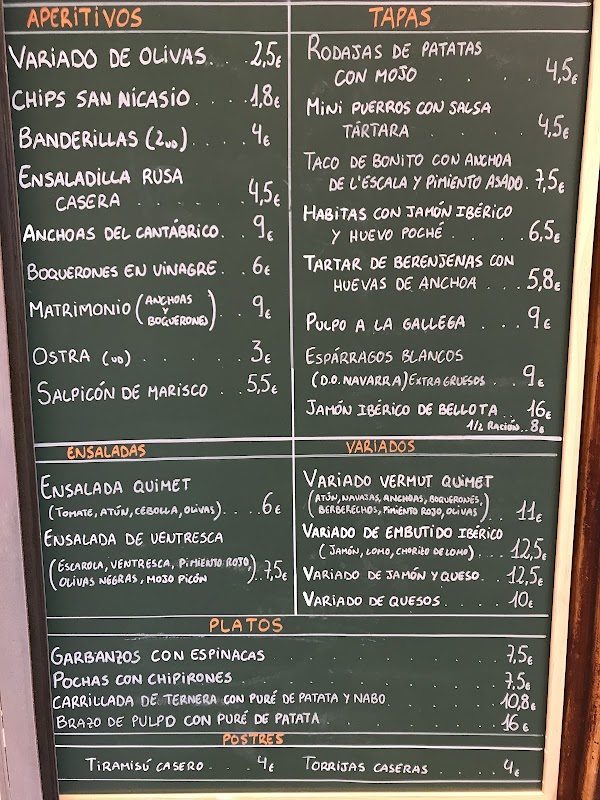 APERITIVOS
VARIADO DE OLIVAS. . . 2,5€
CHIPS SAN NICASIO . . . . 1,8€
BANDERILLAS (2UD) . . . . 4€
ENSALADILLA RUSA
CASERA . . . . . 4,5€
ANCHOAS DEL CANTÁBRICO. . 9€
BOQUERONES EN VINAGRE. . 6€
MATRIMONIO (ANCHOAS
Y
BOQUERONES) . . 9€
OSTRA (UD) . . . . . 3€
SALPICÓN DE MARISCO . . 5,5€
TAPAS
RODAJAS DE PATATAS
CON MOJO . . . . 4,5€
MINI PUERROS CON SALSA
TÁRTARA . . . . 4,5€
TACO DE BONITO CON ANCHOA
DE L'ESCALA Y PIMIENTO ASADO. 7,5€
HABITAS CON JAMÓN IBÉRICO
Y HUEVO POCHÉ . . . 6,5€
TARTAR DE BERENJENAS CON
HUEVAS DE ANCHOA . . 5,8€
PULPO A LA GALLEGA . . . 9€
ESPÁRRAGOS BLANCOS
(D.O. NAVARRA) EXTRAGRUESOS . . 9€
JAMÓN IBÉRICO DE BELLOTA . . 16€
1/2 RACIÓN.. 8€
ENSALADAS
ENSALADA QUIMET
(TOMATE, ATÚN, CEBOLLA, OLIVAS). . . . 6€
ENSALADA DE VENTRESCA
(ESCAROLA, VENTRESCA, PIMIENTO ROJO,
OLIVAS NEGRAS, MOJO PICÓN) . . 7,5€
VARIADOS
VARIADO VERMUT QUIMET
(ATÚN, NAVAJAS, ANCHOAS, BOQUERONES,
BERBERECHOS, PIMIENTO ROJO, OLIVAS) . . 11€
VARIADO DE EMBUTIDO IBÉRICO
(JAMÓN, LOMO, CHORIZO DE LOMO) . . . 12,5€
VARIADO DE JAMÓN Y QUESO. . 12,5€
VARIADO DE QUESOS . . . . 10€
PLATOS
GARBANZOS CON ESPINACAS . . . . . . . . 7,5€
POCHAS CON CHIPIRONES . . . . . . . . 7,5€
CARRILLADA DE TERNERA CON PURÉ DE PATATA Y NABO . . . . 10,8€
BRAZO DE PULPO CON PURÉ DE PATATA . . . . . . 16€
POSTRES
TIRAMISÚ CASERO . . . 4€ TORRIJAS CASERAS . . . 4€